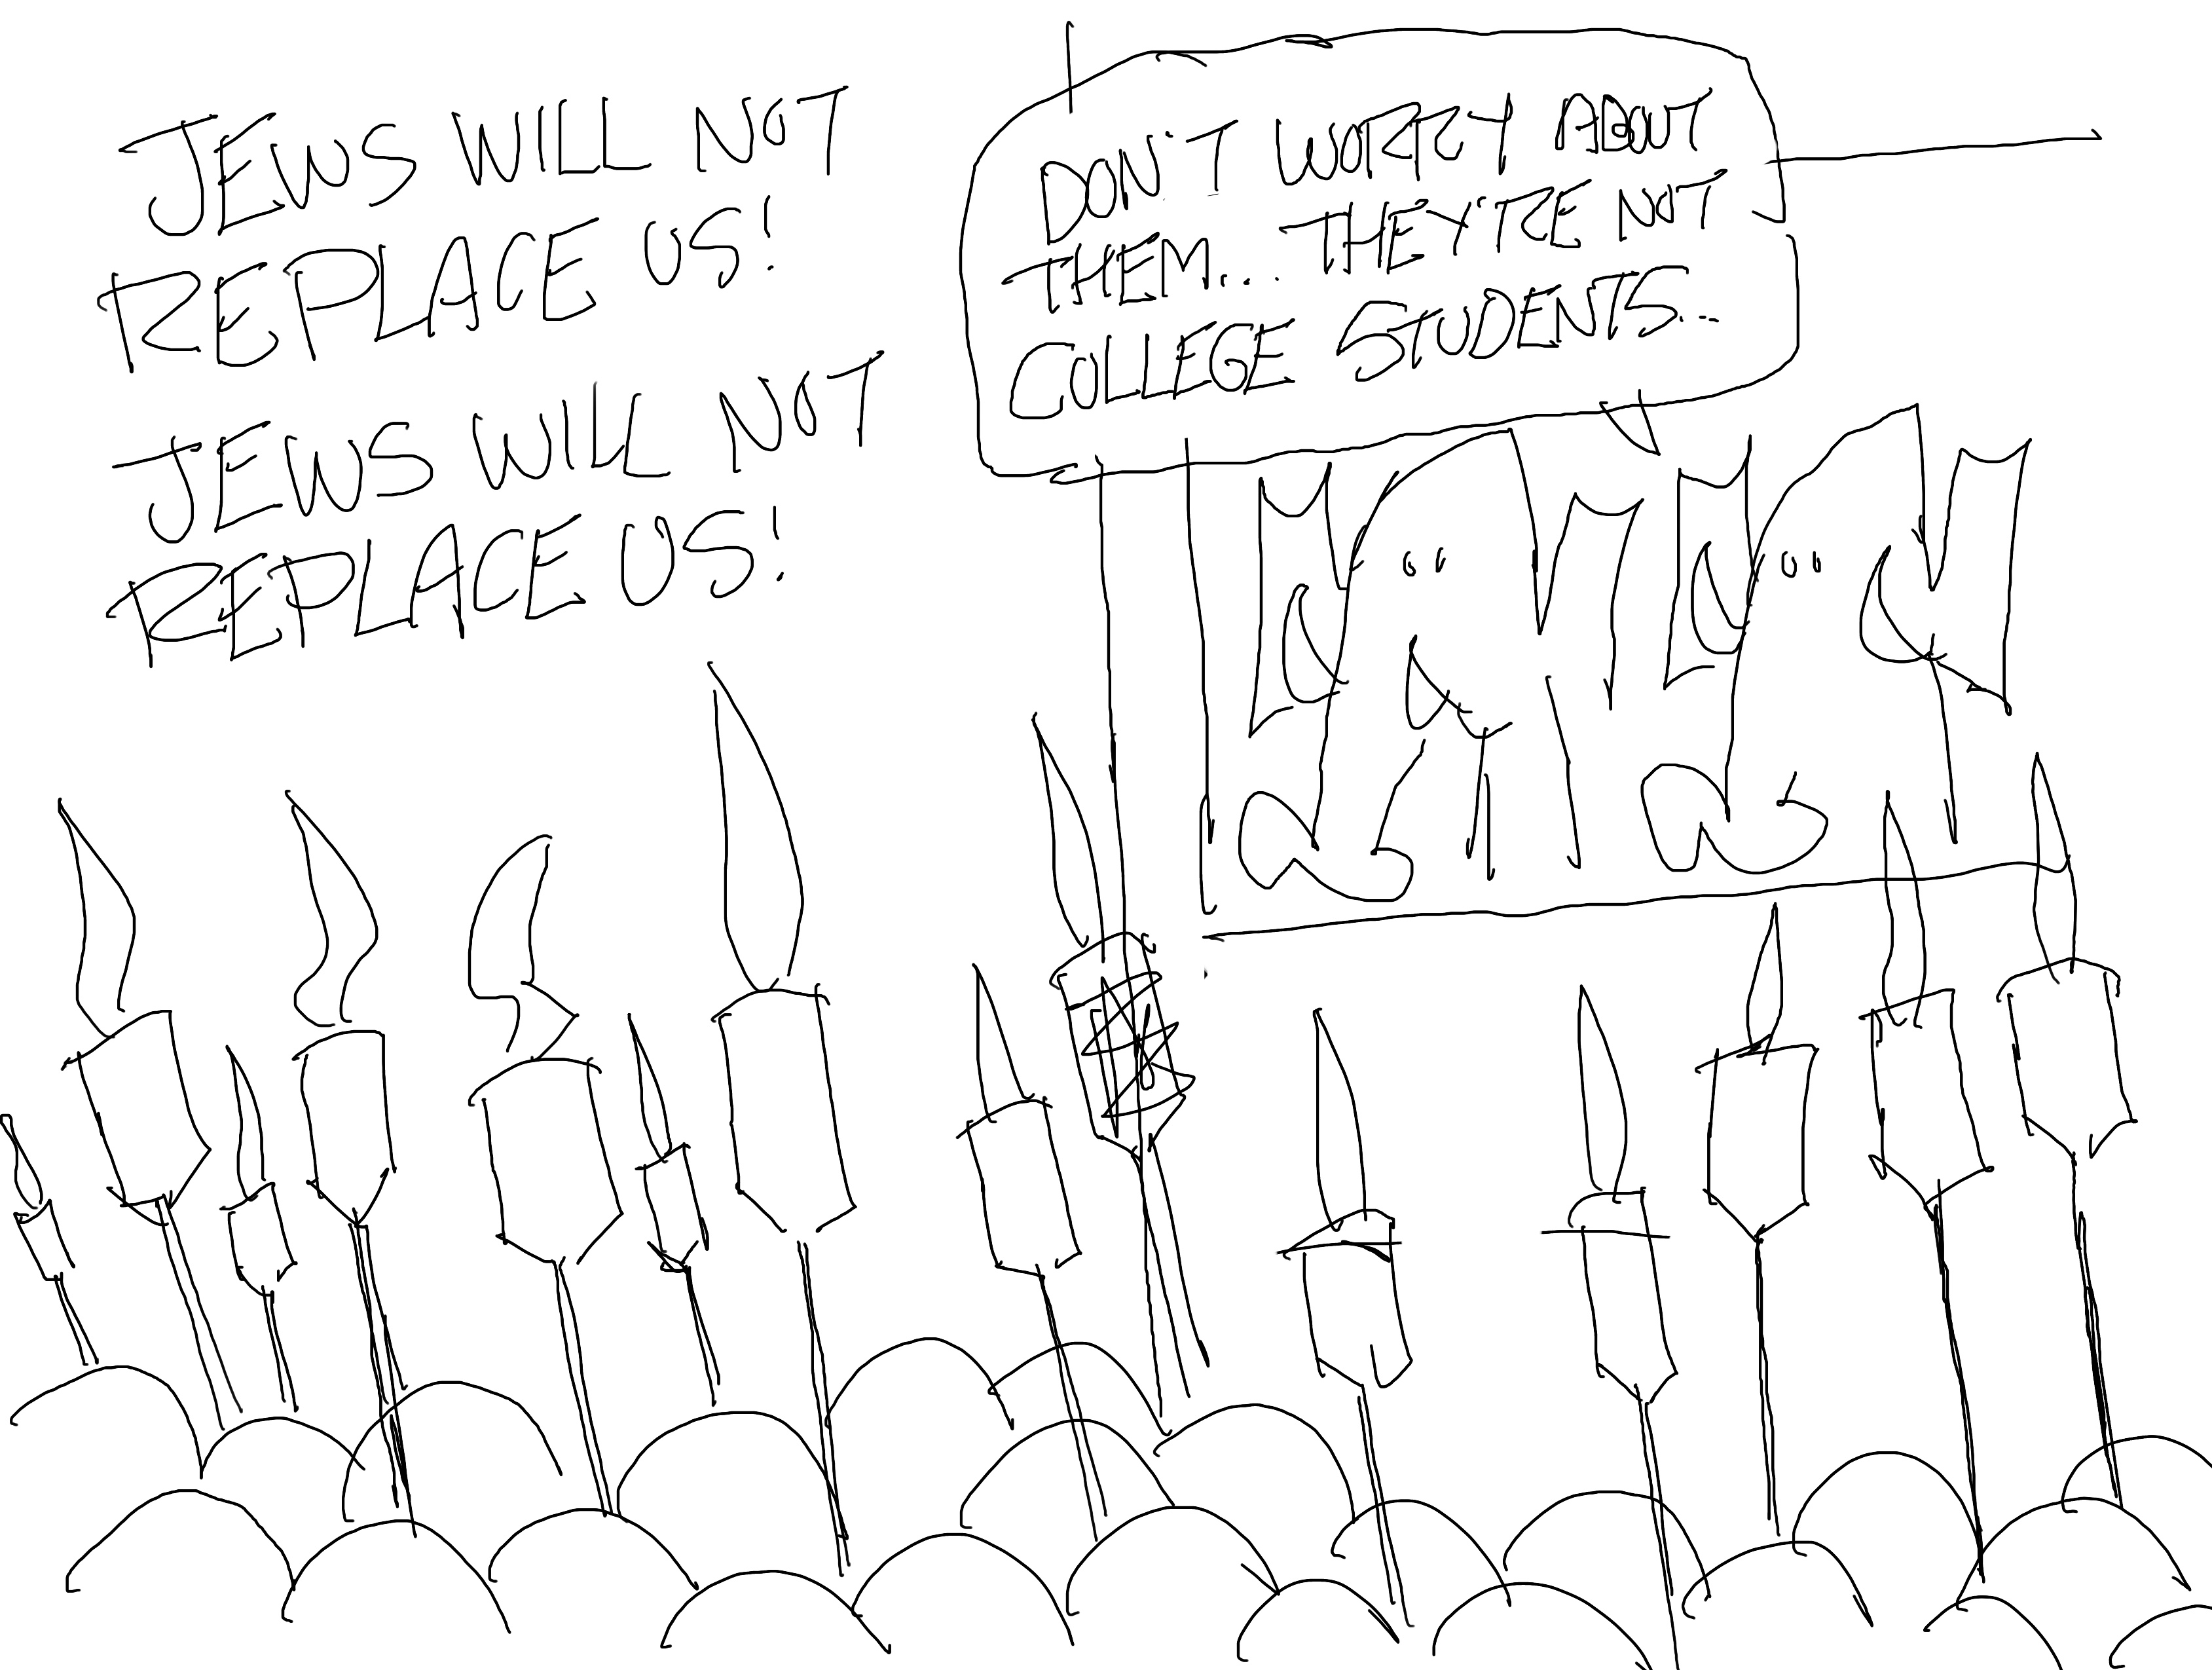 JEWS WILL NOT
REPLACE US!
JEWS WILL NOT
REPLACE US!
DON'T WORRY ABOUT
THEM... THEY'RE NOT
COLLEGE STUDENTS...